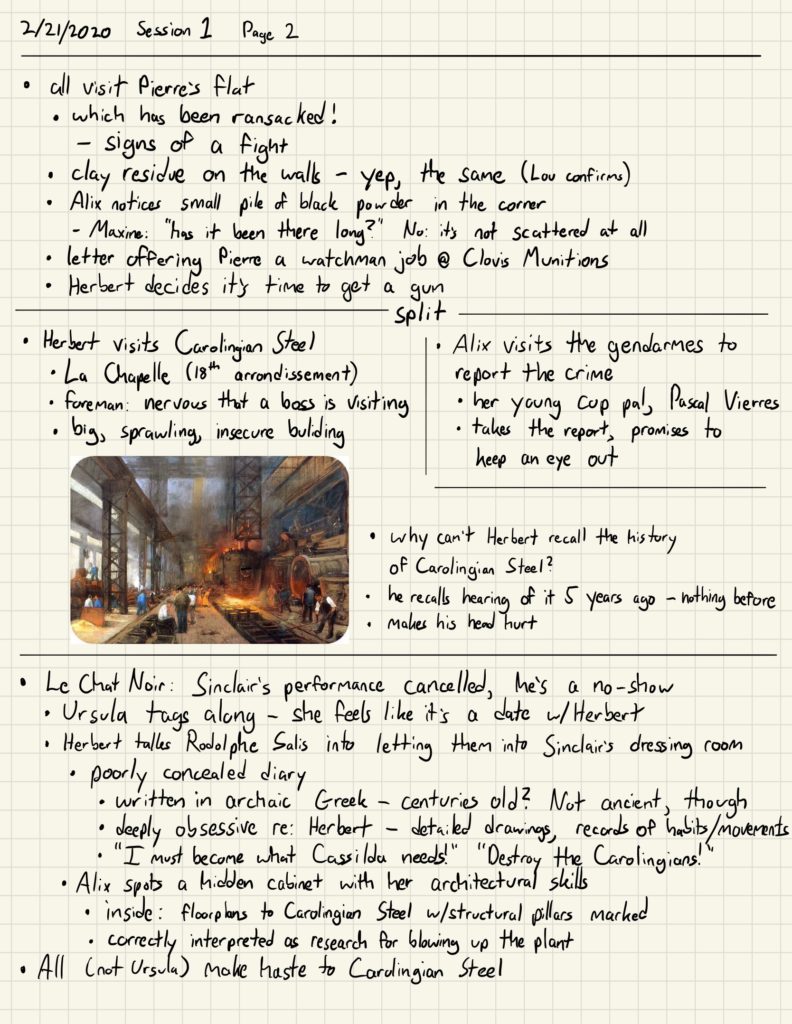 2/21/2020 Session 1 Page 2
• all visit Pierre's flat
• which has been ransacked!
– signs of a fight
• clay residue on the walls – yep, the same (Lou confirms)
• Alix notices small pile of black powder in the corner
- Maxine: "has it been there long?" No: it's not scattered at all
• letter offering Pierre a watchman job @ Clovis Munitions
• Herbert decides it's time to get a gun
split
• Herbert visits Carolingian Steel
• La Chapelle (18th arrondissement)
• foreman: nervous that a boss is visiting
• big, sprawling, insecure building
• Alix visits the gendarmes to
report the crime
• her young cop pal, Pascal Vierres
• takes the report, promises to
keep an eye out
• why can't Herbert recall the history
of Carolingian Steel?
• he recalls hearing of it 5 years ago – nothing before
• makes his head hurt
• Le Chat Noir: Sinclair's performance cancelled, he's a no-show
• Ursula tags along – she feels like it's a date w/Herbert
• Herbert talks Rodolphe Salis into letting them into Sinclair's dressing room
• poorly concealed diary
• written in archaic Greek – centuries old? Not ancient, though
• deeply obsessive re: Herbert – detailed drawings, records of habits/movements
• "I must become what Cassilda needs!" "Destroy the Carolingians!"
• Alix spots a hidden cabinet with her architectural skills
• inside: floorplans to Carolingian Steel w/structural pillars marked
• correctly interpreted as research for blowing up the plant
• All (not Ursula) make haste to Carolingian Steel